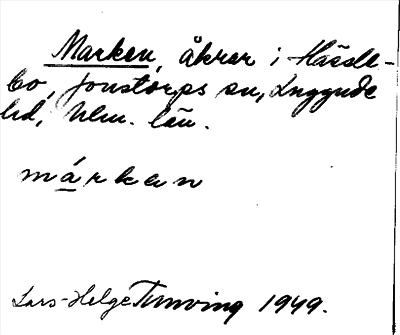 Marken, åkrar i Hässle-
bo, Jonstorps sn, Luggude
hd, Mlm. län.
márkan
Lars-Helge Tunving 1949.